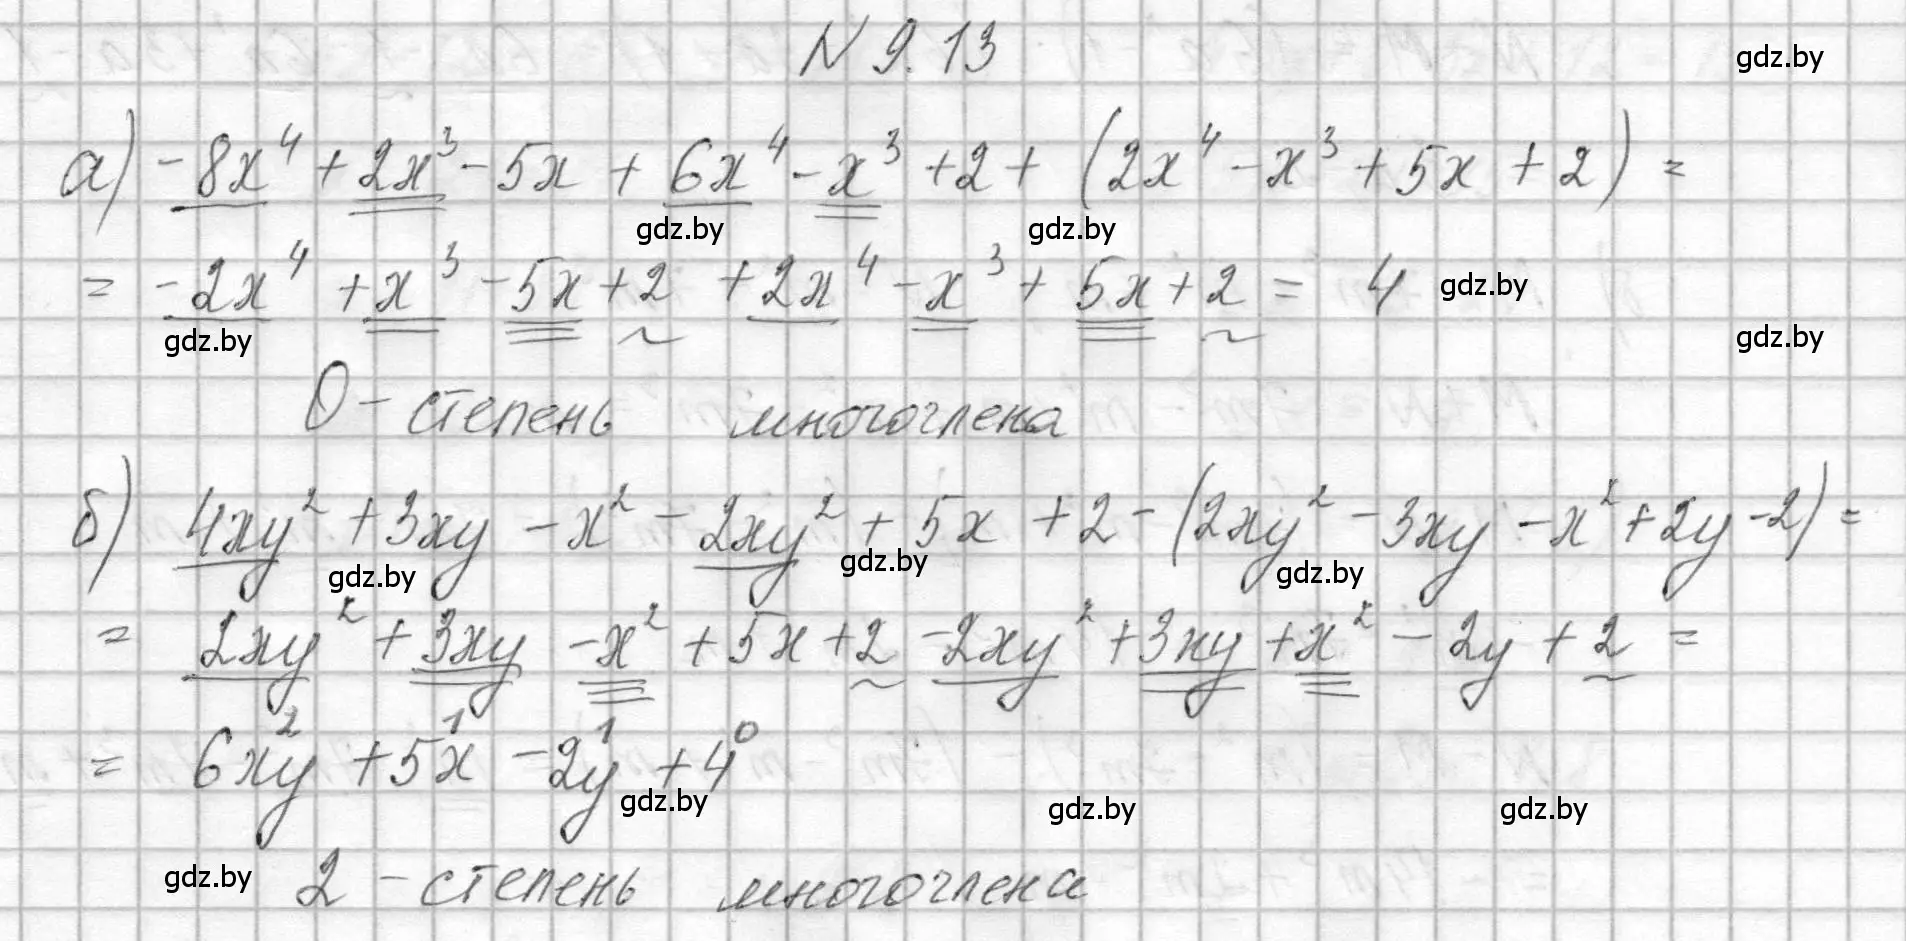 N 9.13 gdz.by
а) -8x⁴ + 2x³ - 5x + 6x⁴ - x³ + 2 + (2x⁴ - x³ + 5x + 2) =
gdz.by gdz.by
= -2x⁴ + x³ - 5x + 2 + 2x⁴ - x³ + 5x + 2 = 4 gdz.by
gdz.by gdz.by
0 - степень многочлена
б) 4xy² + 3xy - x² - 2xy² + 5x + 2 - (2xy² - 3xy - x² + 2y - 2) =
gdz.by gdz.by gdz.by
= 2xy² + 3xy - x² + 5x + 2 - 2xy² + 3xy + x² - 2y + 2 =
2 1 1 0
= 6xy + 5x - 2y + 4
gdz.by gdz.by gdz.by
gdz.by 2 - степень многочлена